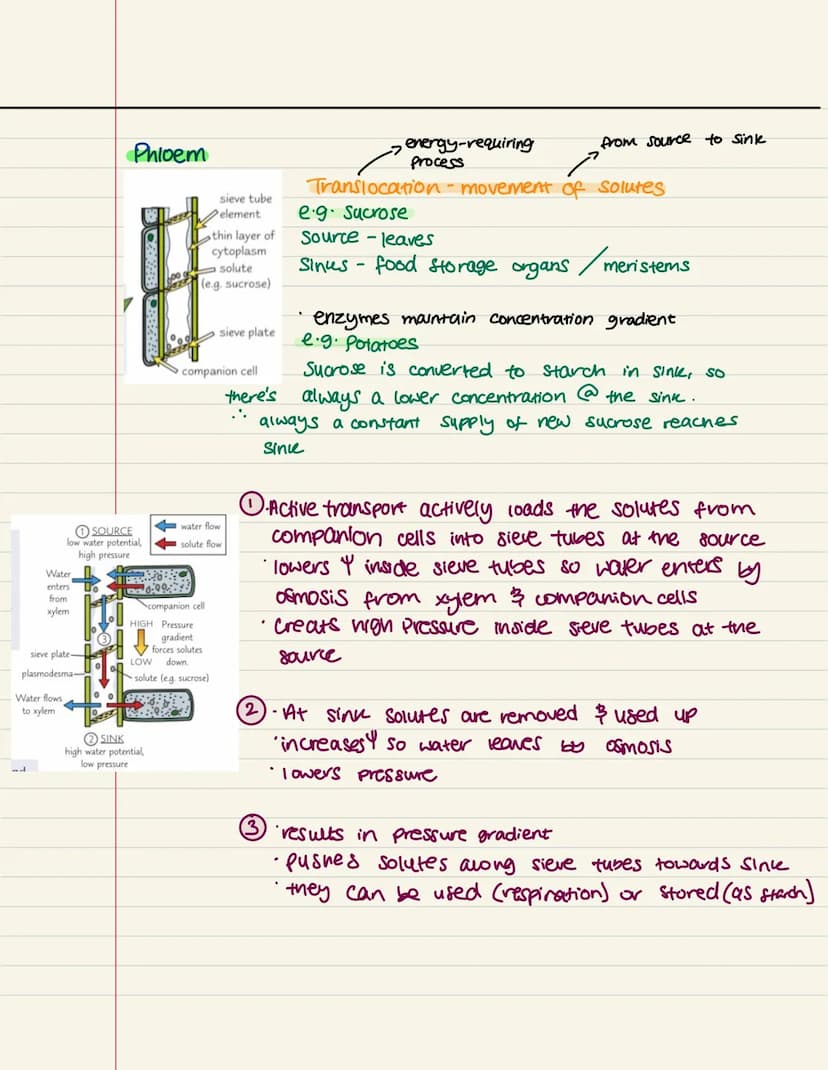 Phloem
energy-requiring
process
from source to sink
Translocation - movement of solutes
e.g. sucrose
Source - leaves
Sinks - food storage organs / meristems
sieve tube
element
thin layer of
cytoplasm
solute
(e.g. sucrose)
sieve plate
companion cell
· enzymes maintain concentration gradient
e.g. Potatoes
Sucrose is converted to starch in sink, so
there's always a lower concentration @ the sink.
∴ always a constant supply of new sucrose reaches
sink
① SOURCE
low water potential,
high pressure
water flow
solute flow
Water
enters
from
xylem
companion cell
HIGH Pressure
gradient
forces solutes
LOW down.
③
sieve plate
plasmodesma
solute (e.g. sucrose)
Water flows
to xylem
② SINK
high water potential,
low pressure
① · Active transport actively loads the solutes from
companion cells into sieve tubes at the source
· lowers Ψ inside sieve tubes so water enters by
osmosis from xylem & companion cells
· Creats high Pressure inside sieve tubes at the
source
② · At sink solutes are removed & used up
· increases Ψ so water leaves osmosis
· lowers pressure
③ · results in pressure gradient
· pushes solutes along sieve tubes towards sink
· they can be used (respiration) or stored (as starch)